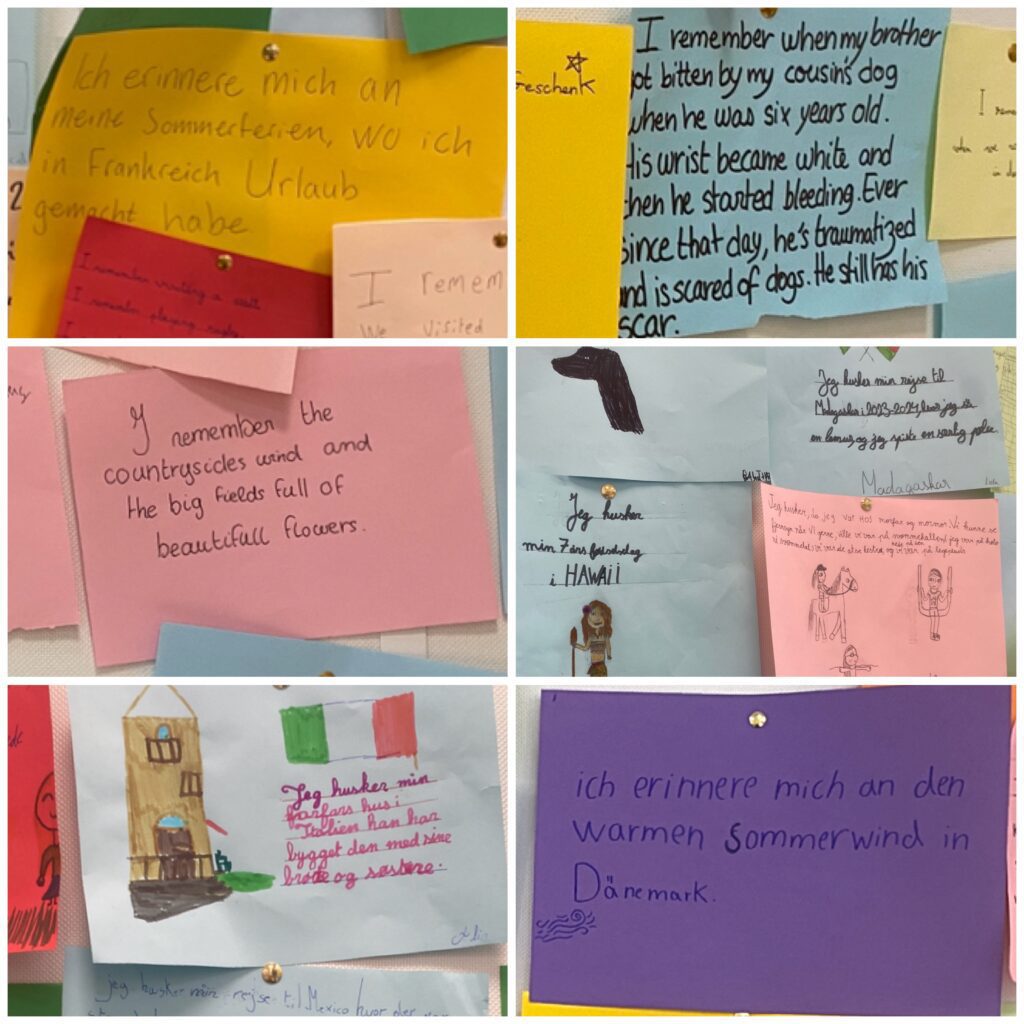 Ich erinnere mich an
meine Sommerferien, wo ich
in Frankreich Urlaub
gemacht habe.
2
I remember
I remember playing rugby
I remem
We visited
Geschenk
I remember when my brother
got bitten by my cousin's dog
when he was six years old.
His wrist became white and
then he started bleeding. Ever
since that day, he's traumatized
and is scared of dogs. He still has his
scar.
I reme
when we
in
I remember the
countrysides wind and
the big fields full of
beautifull flowers.
Jeg husker min rejse til
Madagaskar i 2023-2024, hvor jeg så
en lemur, og jeg spiste en særlig pølse.
Madagaskar
Jeg husker
min 7 års fødselsdag
i HAWAII
Jeg husker, da jeg var hos morfar og mormor. Vi kunne se
Jeg husker min
farfars hus i
Italien han har
bygget den med sine
brøde og søstere.
jeg husker min rejse til Mexico hvor der var
ich erinnere mich an den
warmen Sommerwind in
Dänemark.